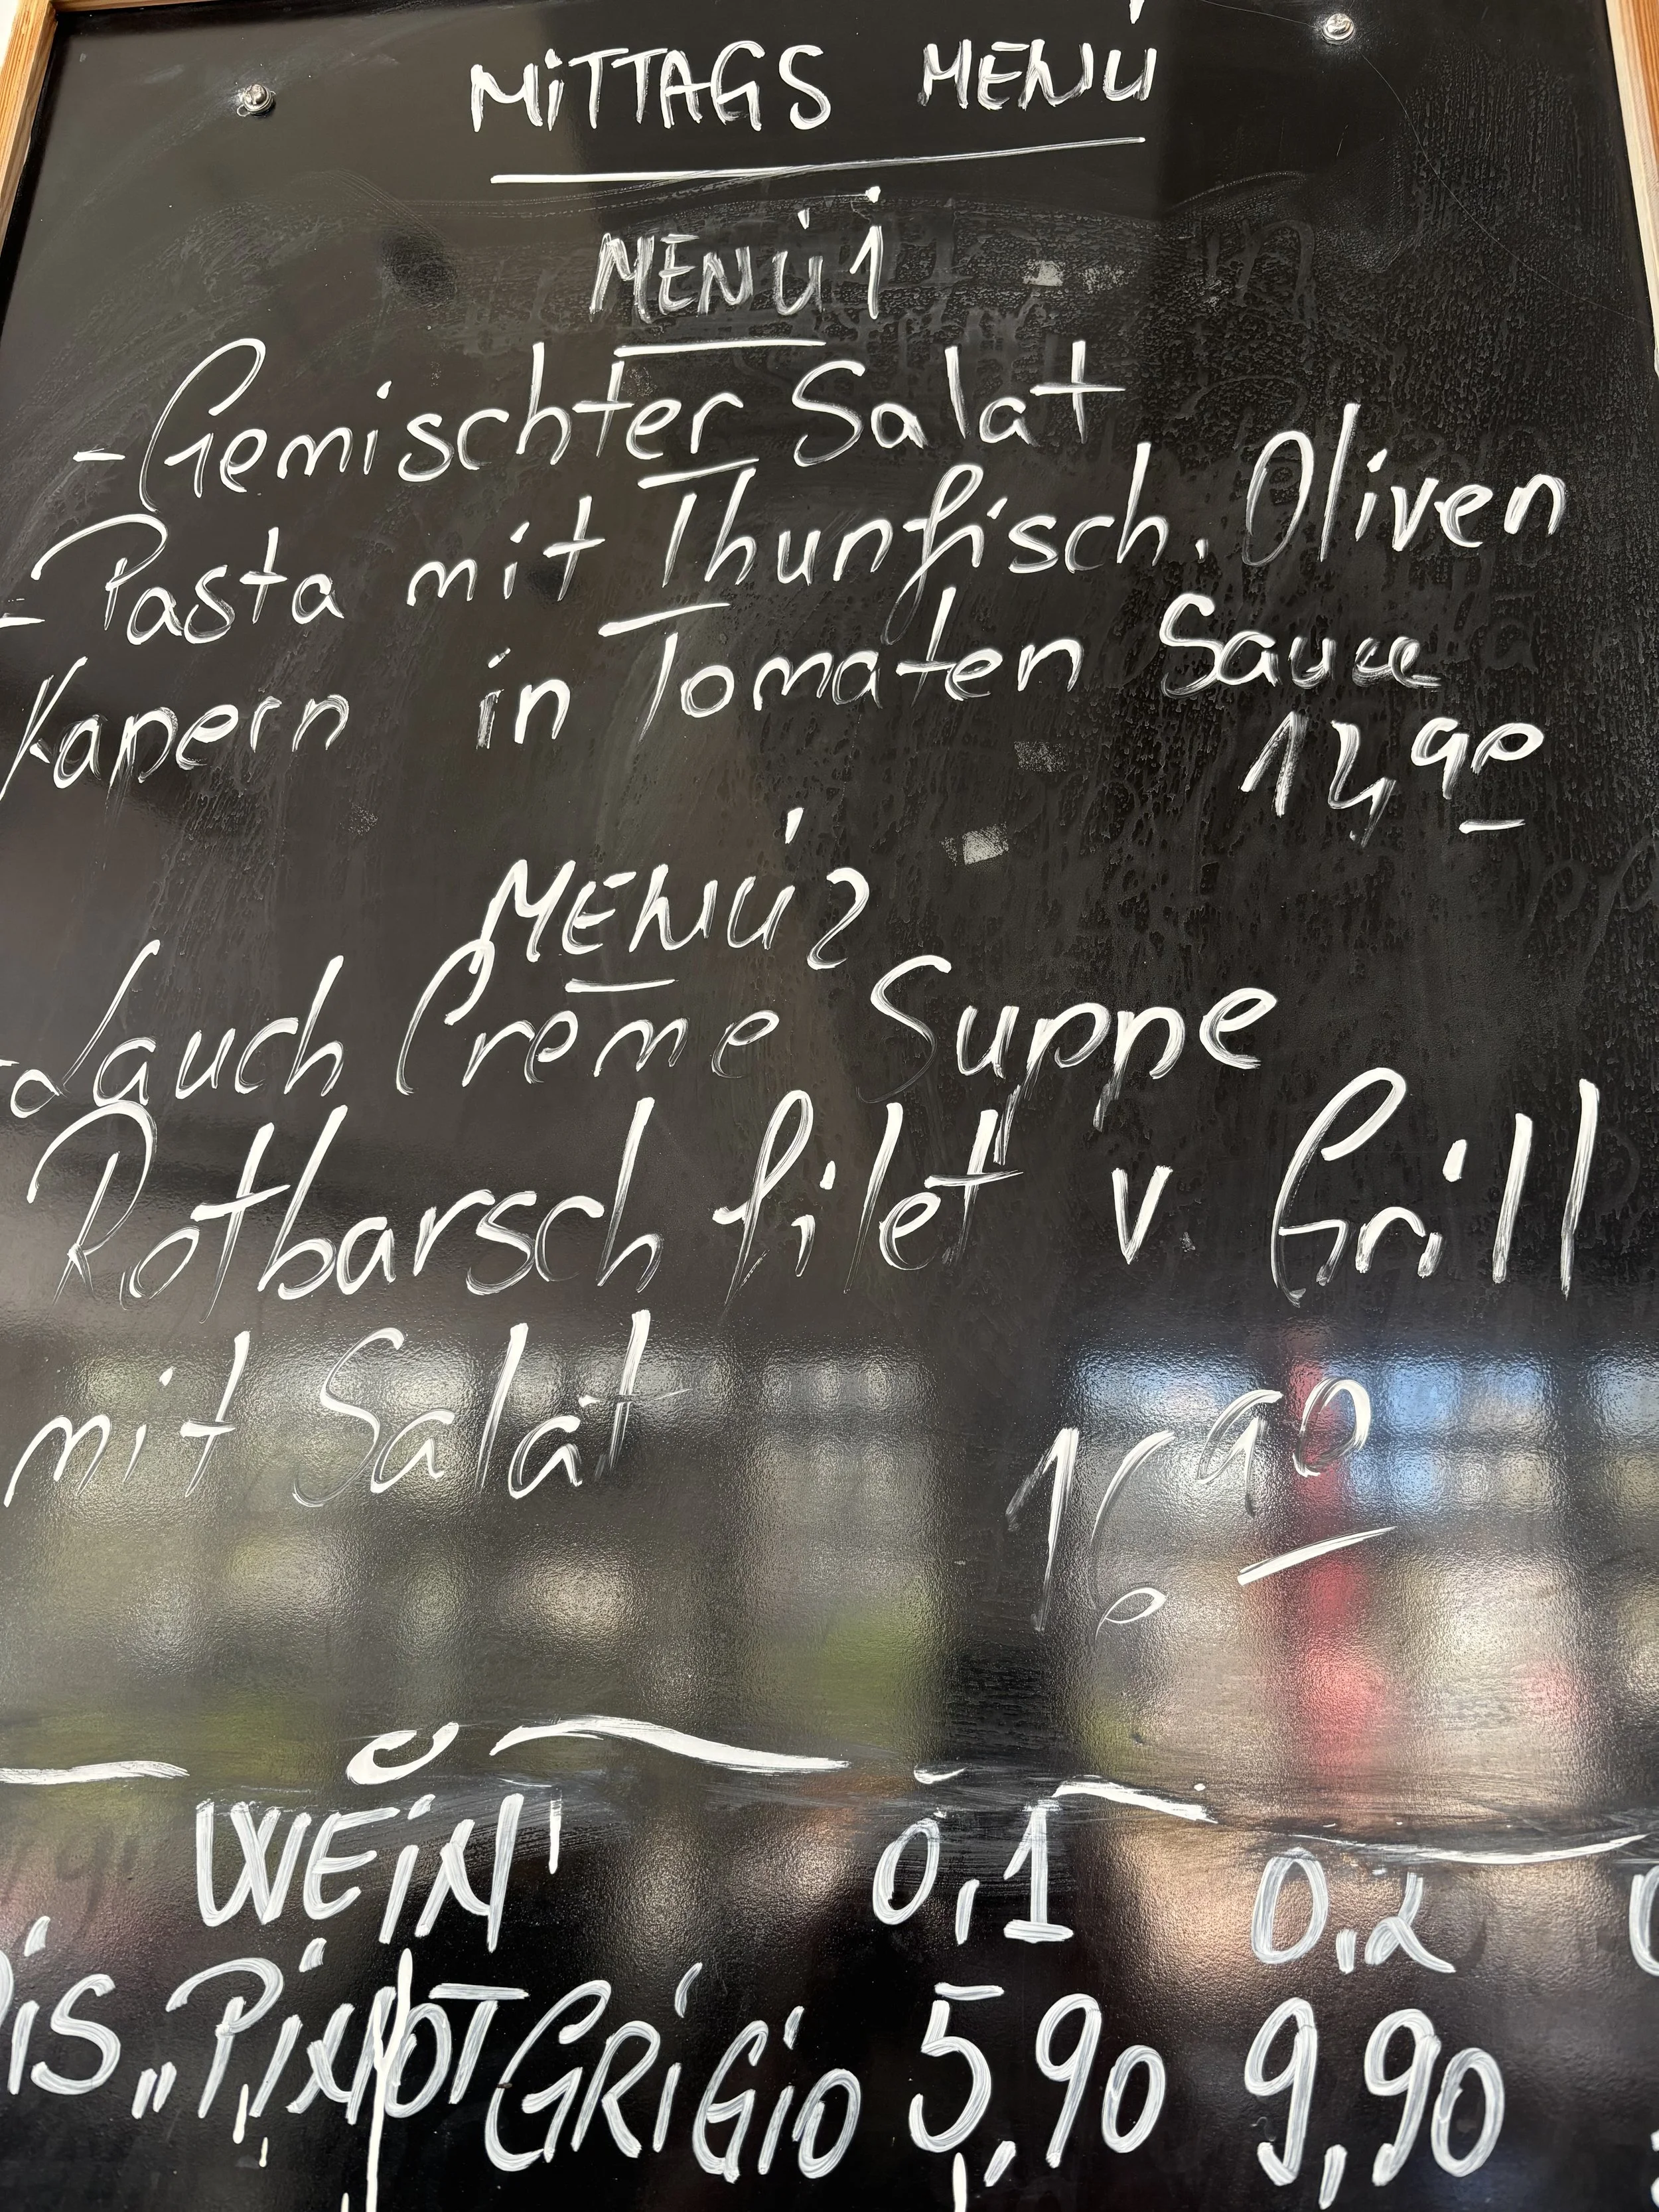 MiTTAGS MENÜ
MENÜ 1
- Gemischter Salat
- Pasta mit Thunfisch, Oliven
Kapern in Tomaten Sauce
14,90
MENÜ 2
- Lauch Creme Suppe
Rotbarsch filet v. Grill
mit Salat
WEiN 0,1 0,2
PiNOT GRiGiO 5,90 9,90